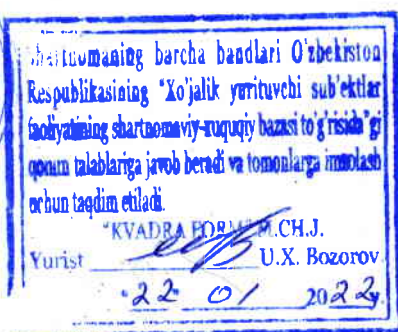 Shartnomaning barcha bandlari O'zbekiston
Respublikasining "Xo'jalik yurituvchi sub'ektlar
faoliyatining shartnomaviy-xuquqiy bazasi to'g'risida"gi
qonun talablariga javob beradi va tomonlarga imzolash
uchun taqdim etiladi.
"KVADRA FORM" M.CH.J.
Yurist U.X. Bozorov
"22" 01 2022y.